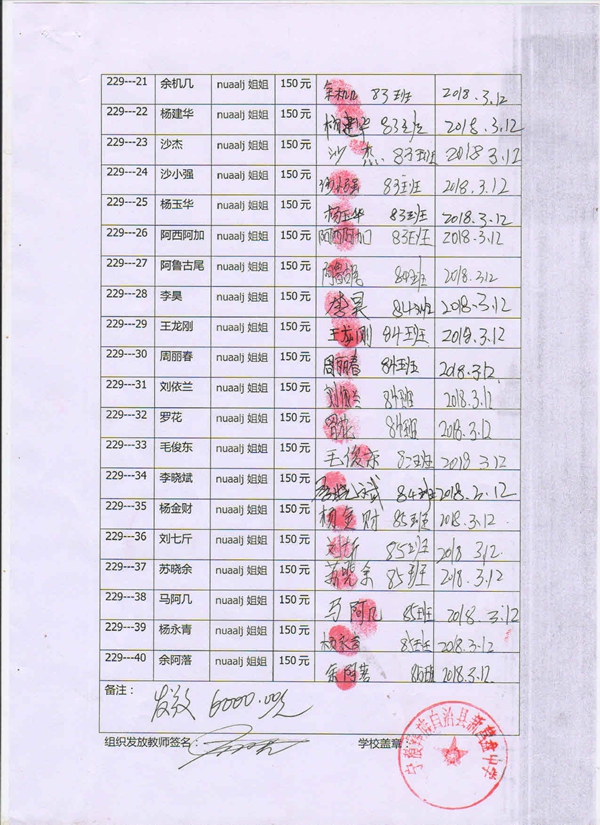 229---21 余机几 nuaalj 姐姐 150 元 余机几 83班 2018.3.12
229---22 杨建华 nuaalj 姐姐 150 元 杨建华 83班 2018.3.12
229---23 沙杰 nuaalj 姐姐 150 元 沙杰 83班 2018.3.12
229---24 沙小强 nuaalj 姐姐 150 元 沙小强 83班 2018.3.12
229---25 杨玉华 nuaalj 姐姐 150 元 杨玉华 83班 2018.3.12
229---26 阿西阿加 nuaalj 姐姐 150 元 阿西阿加 83班 2018.3.12
229---27 阿鲁古尾 nuaalj 姐姐 150 元 阿鲁古尾 84班 2018.3.12
229---28 李昊 nuaalj 姐姐 150 元 李昊 84班 2018.3.12
229---29 王龙刚 nuaalj 姐姐 150 元 王龙刚 84班 2018.3.12
229---30 周丽春 nuaalj 姐姐 150 元 周丽春 84班 2018.3.12
229---31 刘依兰 nuaalj 姐姐 150 元 刘依兰 84班 2018.3.12
229---32 罗花 nuaalj 姐姐 150 元 罗花 84班 2018.3.12
229---33 毛俊东 nuaalj 姐姐 150 元 毛俊东 班 2018.3.12
229---34 李晓斌 nuaalj 姐姐 150 元 84班 2018.3.12
229---35 杨金财 nuaalj 姐姐 150 元 杨金财 85班 2018.3.12
229---36 刘七斤 nuaalj 姐姐 150 元 85班 2018 3.12
229---37 苏晓余 nuaalj 姐姐 150 元 苏晓余 85班 2018.3.12
229---38 马阿几 nuaalj 姐姐 150 元 马阿几 85班 2018.3.12
229---39 杨永青 nuaalj 姐姐 150 元 杨永青 85班 2018.3.12
229---40 余阿落 nuaalj 姐姐 150 元 85班 2018.3.12
备注：
发放 6000.00元
组织发放教师签名： 学校盖章
宁蒗彝族自治县新营盘中学